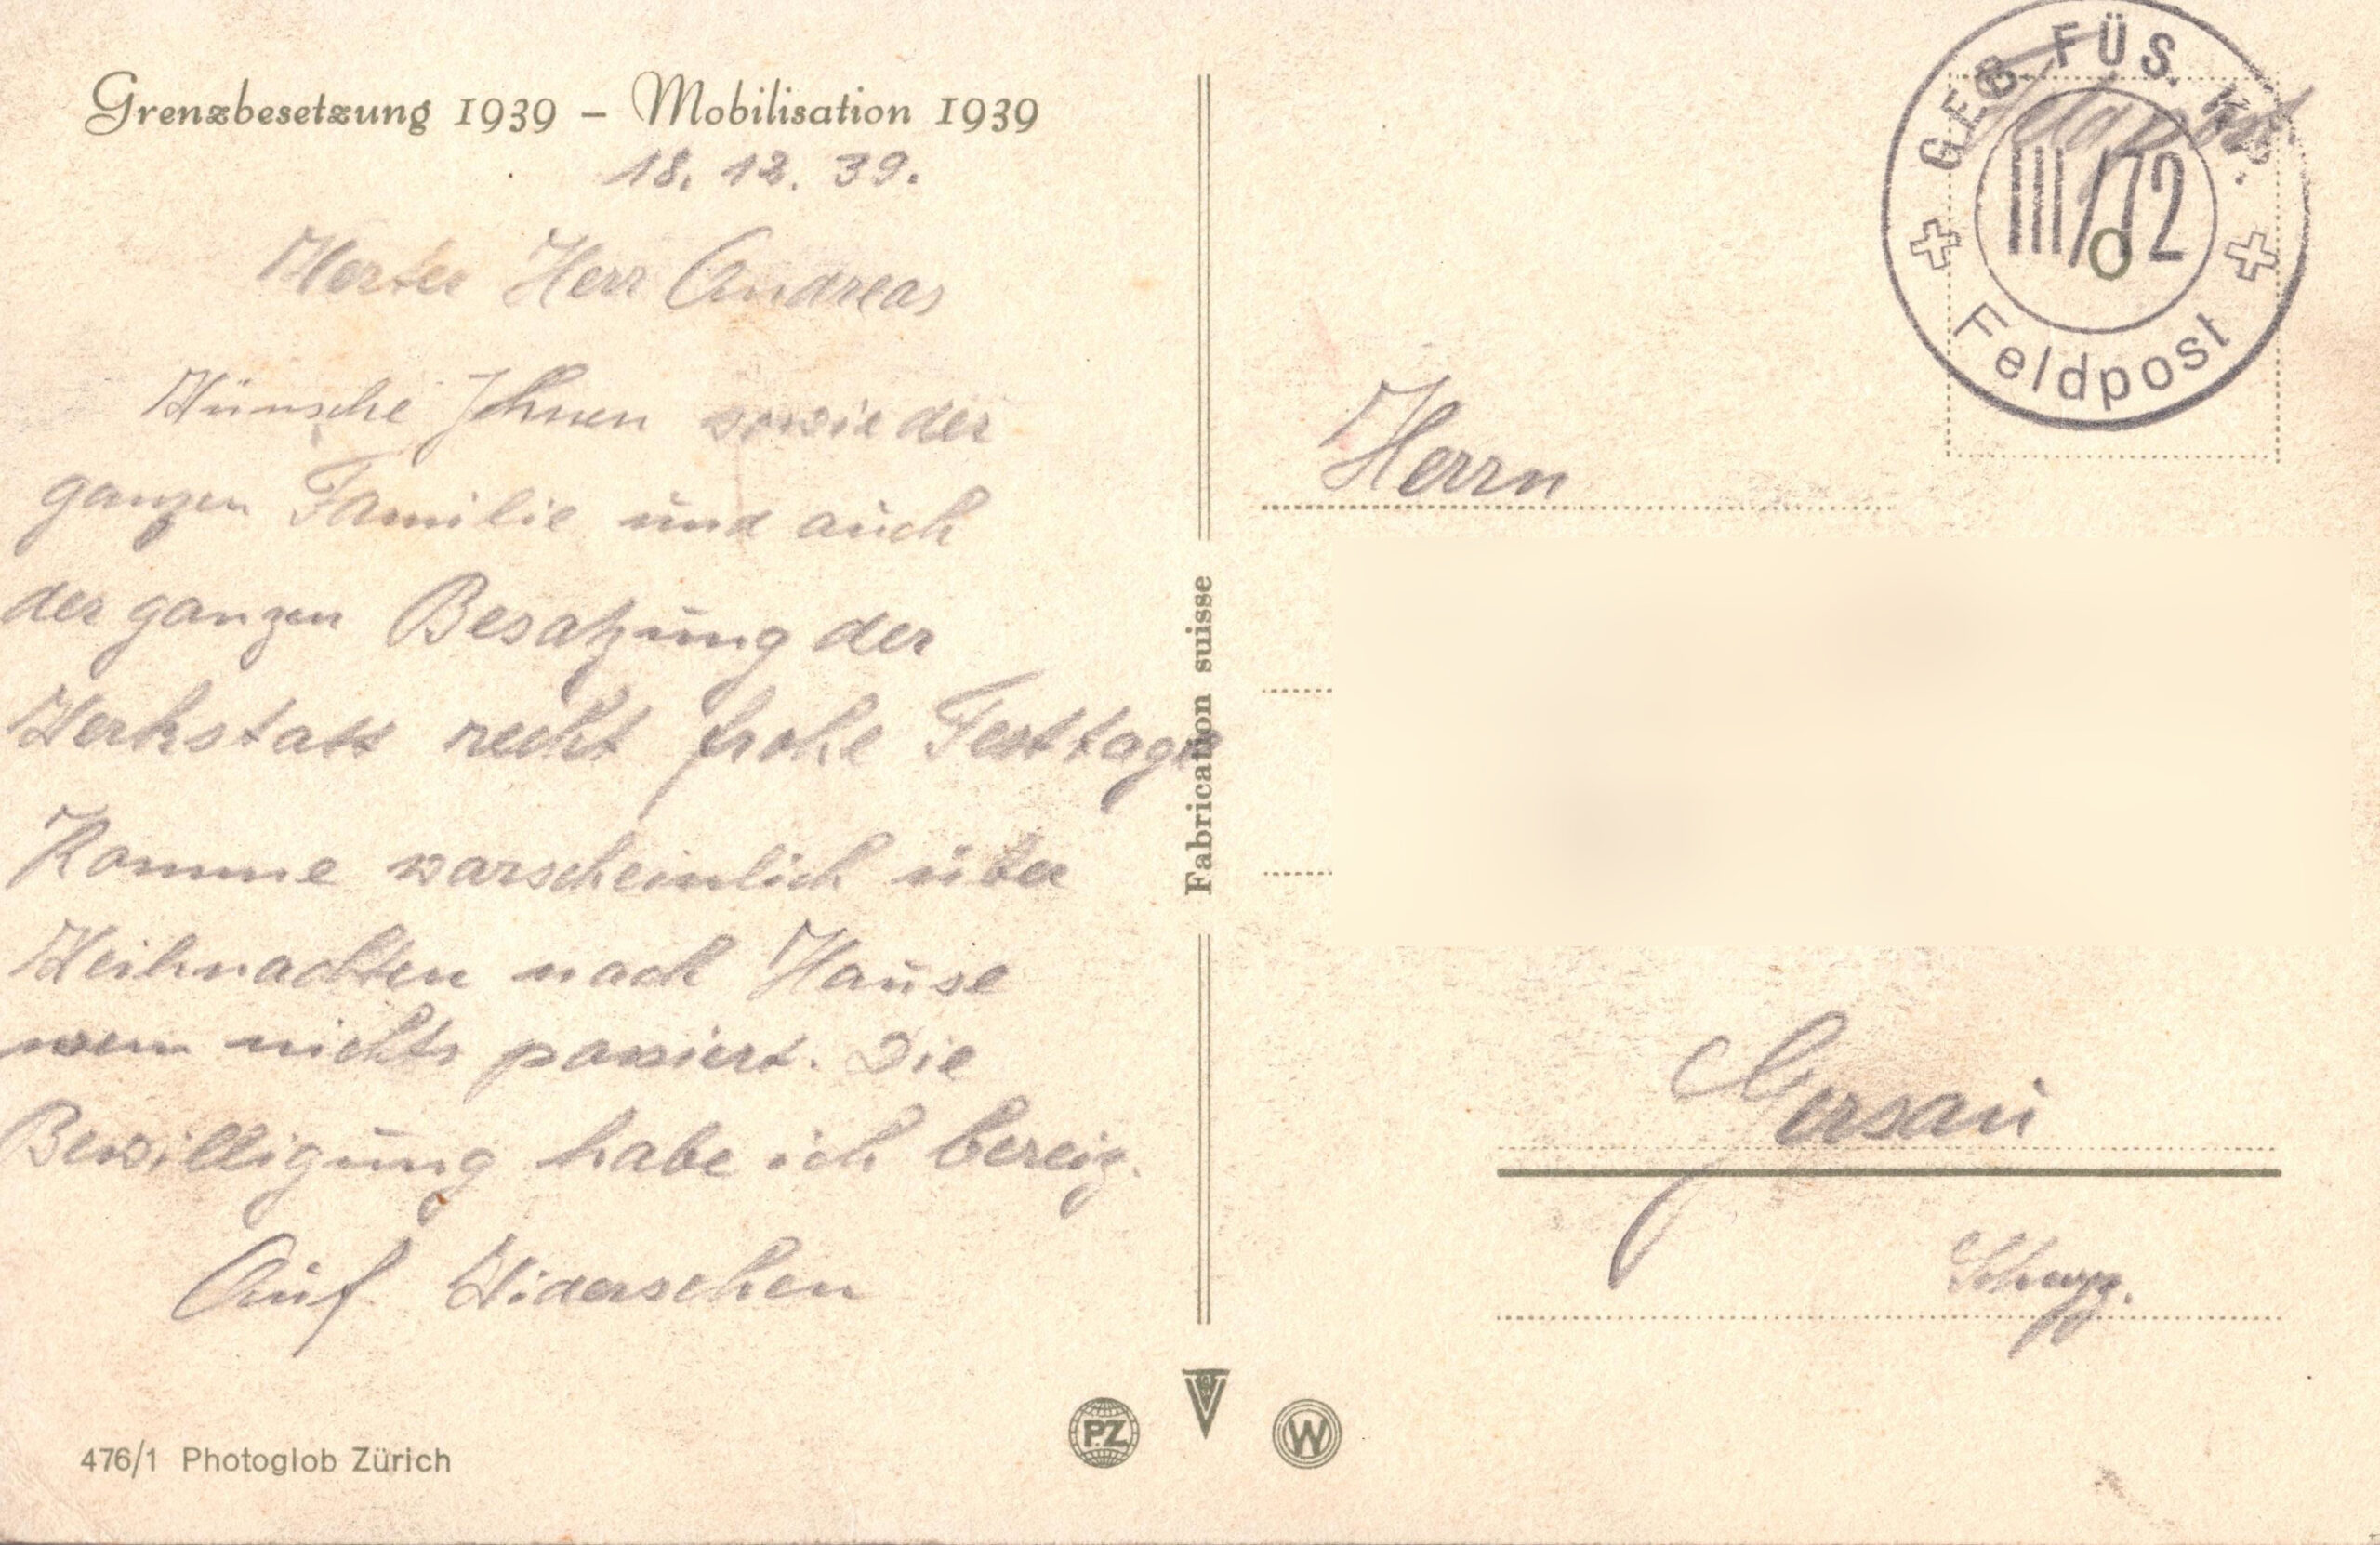 Grenzbesetzung 1939 – Mobilisation 1939
18. 12. 39.
Werter Herr Andreas
Wünsche Ihnen sowie der
ganzen Familie und auch
der ganzen Besatzung der
Werkstatt recht frohe Festtage
Komme warscheinlich über
Weihnachten nach Hause
wen nichts passiert. Die
Bewilligung habe ich bereiz.
Auf Widersehen
476/1 Photoglob Zürich
Fabrication suisse
PZ
W
GEB. FÜS. Kp.
III/72
Feldpost
Feldpost
Herrn
Gersau
Schwyz.